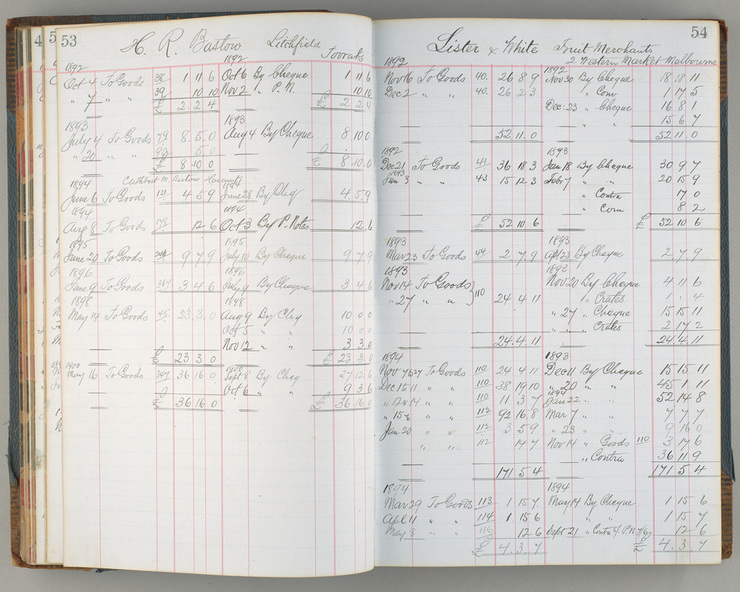 53
H. R. Bastow Litchfield Toorak
1892 1892
Oct 4 To Goods 38 1 11 6 Oct 6 By Cheque 1 11 6
" 7 " " 39 10 10 Nov 2 " P.N. 10 10
£ 2 2 4 £ 2 2 4
1893 1893
July 4 To Goods 79 8 5 0 Aug 4 By Cheque 8 10 0
" 20 " " 5 0
£ 8 10 0 £ 8 10 0
1894
June 6 To Goods 4 5 9 June 28 By Cheq 4 5 9
1894 1894
Aug 8 To Goods 12 6 Oct 3 By P. Notes 12 6
1895 1895
June 20 To Goods 9 7 9 July 10 By Cheque 9 7 9
1896 1896
June 9 To Goods 3 4 6 By Cheque 3 4 6
1898 1898
May 19 To Goods 23 3 0 Aug 9 By Cheq 10 0 0
Oct 5 " " 10 0 0
Nov 12 " " 3 3 0
£ 23 3 0 £ 23 3 0
1900
May 16 To Goods 36 16 0 Sept 8 By Cheq 27 12 6
Oct 6 " " 9 3 6
£ 36 16 0 £ 36 16 0
54
Lister & White Fruit Merchants
2 Western Market Melbourne
1892 1892
Nov 16 To Goods 40 26 8 9 Nov 30 By Cheque 18 18 11
Dec 2 " " 40 26 2 3 " Com 1 17 5
Dec 23 " Cheque 16 8 1
" " 15 6 7
52 11 0 52 11 0
1892 1893
Dec 21 To Goods 41 36 18 3 Jan 18 By Cheque 30 9 7
1893
Jan 3 " " 43 15 12 3 Feb 7 " " 20 15 9
" Contra 17 0
" Com 8 2
£ 52 10 6 £ 52 10 6
1893 1893
Mar 23 To Goods 47 2 7 9 Apl 28 By Cheque 2 7 9
1893
Nov 14 To Goods Nov 20 By Cheque 4 11 6
" 27 " " 110 24 4 11 " Crates 1 4
" 27 " Cheque 15 15 11
" Crates 2 17 2
24 4 11 24 4 11
1894 1893
Nov 7 & 27 To Goods 110 24 4 11 Dec 11 By Cheque 15 15 11
Dec 1 & 11 " " 110 38 19 10 " 20 " " 45 1 11
1894
" 12 & 14 " " 110 11 3 7 Jan 22 " " 52 14 8
" 15 " " 112 92 16 8 Mar 7 " " 7 7 7
Jan 20 " " 112 3 5 9 " 23 " " 9 16 0
" " 112 14 7 Nov 14 " Goods 110 3 17 6
" Contra 36 11 9
171 5 4 171 5 4
1894 1894
Mar 29 To Goods 113 1 15 7 May 14 By Cheque 1 15 6
Apl 11 " " 114 1 15 6 " " 1 15 7
May 3 " " 12 6 Sept 21 " Contra 12 6
£ 4 3 7 £ 4 3 7